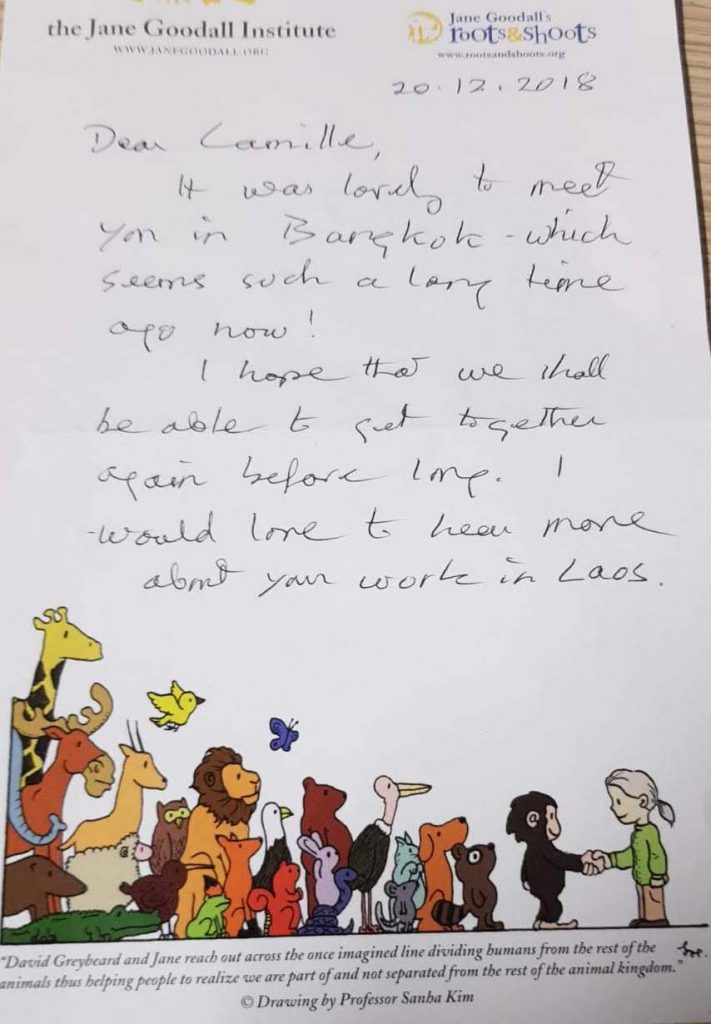 the Jane Goodall Institute
WWW.JANEGOODALL.ORG
Jane Goodall's
roots&shoots
www.rootsandshoots.org
20.12.2018
Dear Camille,
It was lovely to meet
you in Bangkok - which
seems such a long time
ago now!
I hope that we shall
be able to get together
again before long. I
would love to hear more
about your work in Laos.
"David Greybeard and Jane reach out across the once imagined line dividing humans from the rest of the
animals thus helping people to realize we are part of and not separated from the rest of the animal kingdom."
© Drawing by Professor Sanha Kim